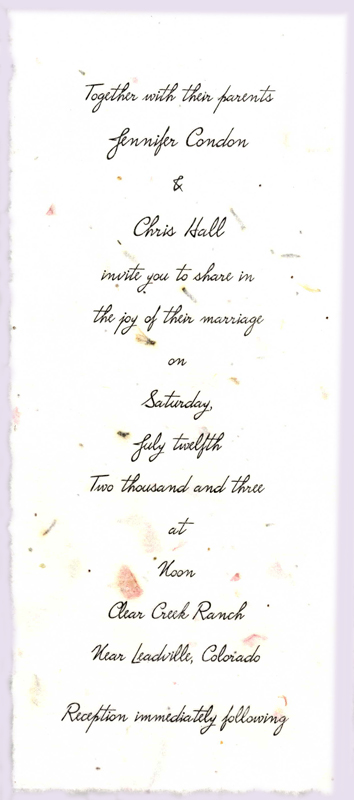 Together with their parents
Jennifer Condon
&
Chris Hall
invite you to share in
the joy of their marriage
on
Saturday,
July twelfth
Two thousand and three
at
Noon
Clear Creek Ranch
Near Leadville, Colorado
Reception immediately following